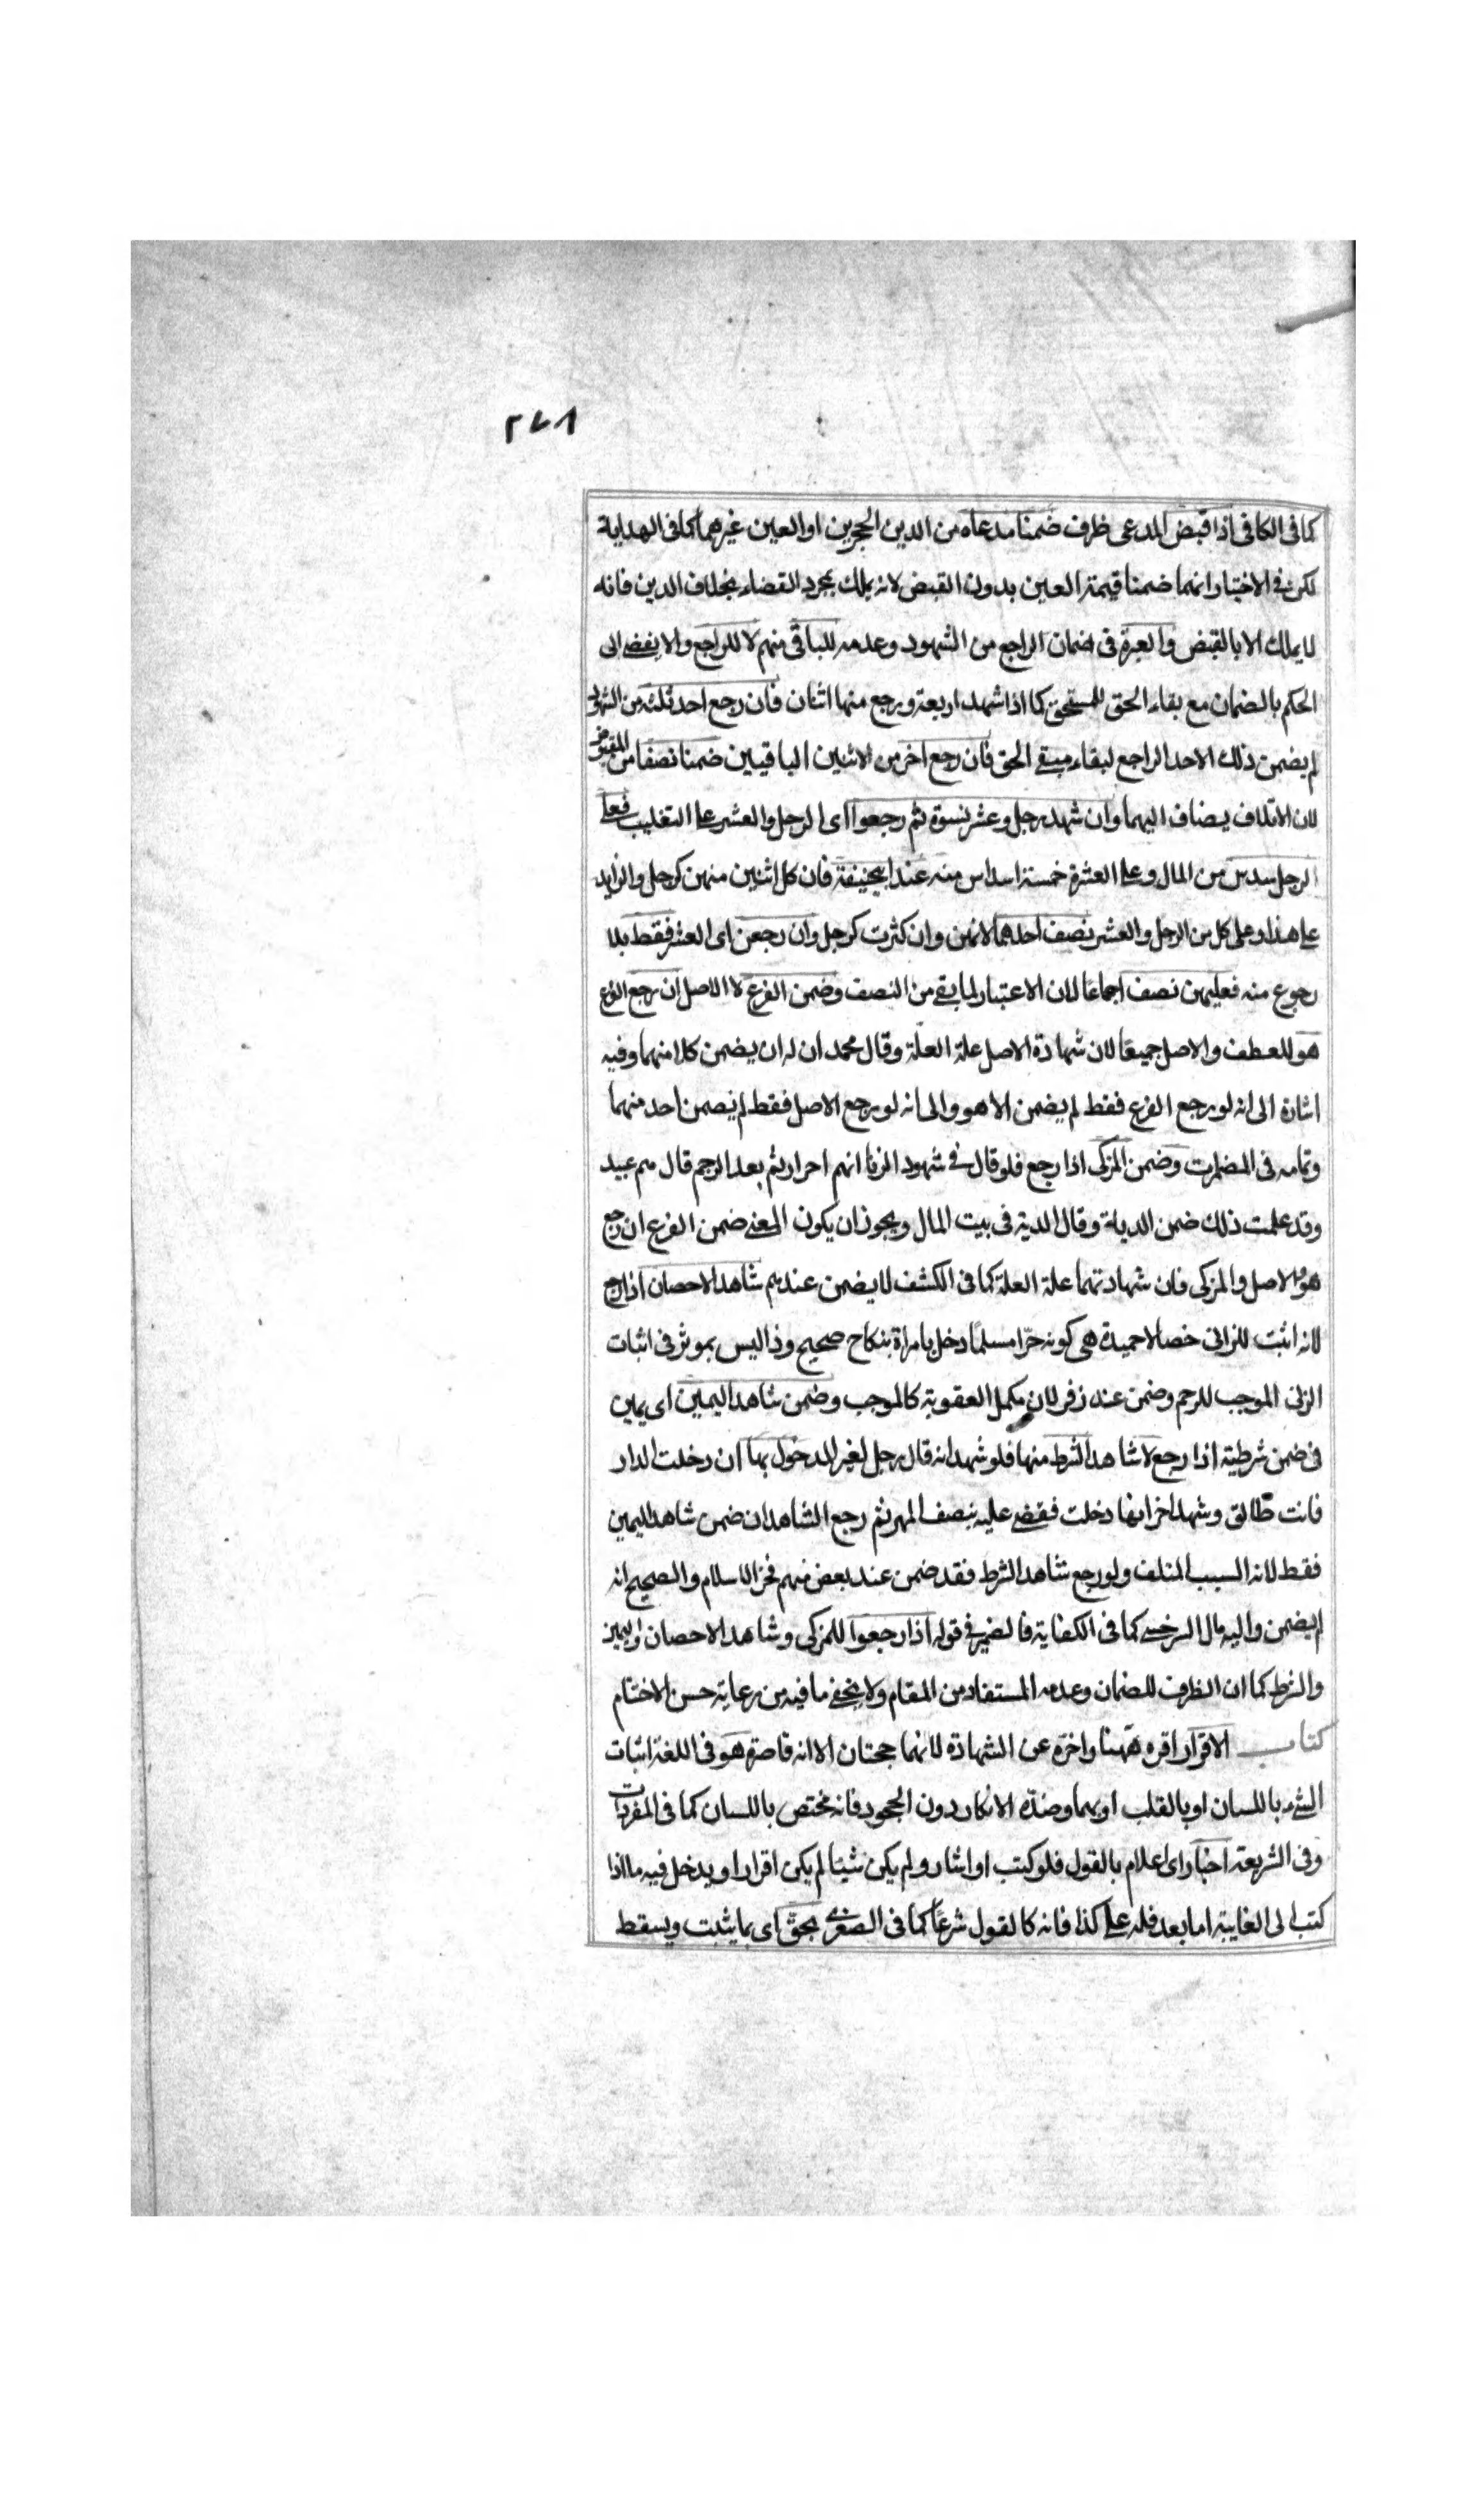 ٢٧٨
كما فى الكافى اذا قبض المدعى ظرف ضمنا مدعاه من الدين الحجرين او العين غيرهما كما فى الهداية
لكن فى الاختيار انهما ضمنا قيمة العين بدون القبض لانه يملك بمجرد القضاء بخلاف الدين فانه
لا يملك الا بالقبض والعبرة فى ضمان الراجع من الشهود وعدمه للباقى منهم لا للراجع والا يفضى الى
الحكم بالضمان مع بقاء الحق للمستحق كما اذا شهد اربعة ورجع منها اثنان فان رجع احد ثلثة من الشهود
لم يضمن ذلك الاحد الراجع لبقاء مبقى الحق فان رجع اخر من الاثنين الباقيين ضمنا نصفا من المقبوض
لان الاتلاف يضاف اليهما وان شهد رجل وعشر نسوة ثم رجعوا اى الرجل والعشر على التغليب فعلى
الرجل سدس من المال وعلى العشرة خمسة اسداس منه عند ابيحنيفة فان كل اثنين منهن كرجل والزايد
على هذا وعلى كل من الرجل والعشر نصف احدهما لانهن وان كثرت كرجل وان رجعن اى العشر فقط بلا
رجوع منه فعليهن نصف اجماعا لان الاعتبار لما بقى من النصف وضمن الفرع لا الاصل ان رجع الفرع
هو للعطف والاصل جميعا لان شهادة الاصل علة العلة وقال محمد ان له ان يضمن كلا منهما وفيه
اشارة الى انه لو رجع الفرع فقط لم يضمن الا هو والى انه لو رجع الاصل فقط لم يضمن احد منهما
وتمامه فى المضمرات وضمن المزكى اذا رجع فلو قال فى شهود الزنا انهم احرار ثم بعد الرجم قال هم عبيد
وقد علمت ذلك ضمن الدية وقالا الدية فى بيت المال ويجوز ان يكون المعنى ضمن الفرع ان رجع
هو والاصل والمزكى فان شهادتهما علة العلة كما فى الكشف لا يضمن عندهم شاهد الاحصان اذا رجع
لانه اثبت للزانى خصالا حميدة هى كونه حرا مسلما دخل بامراة بنكاح صحيح وذا ليس بموثر فى اثبات
الزنى الموجب للرجم وضمن عند زفر لان مكمل العقوبة كالموجب وضمن شاهد اليمين اى يمين
فى ضمن شرطية اذا رجع لا شاهد الشرط منها فلو شهد انه قال رجل لغير المدخول بها ان دخلت الدار
فانت طالق وشهد اخر انها دخلت فقضى عليه بنصف المهر ثم رجع الشاهدان ضمن شاهد اليمين
فقط لانه السبب المتلف ولو رجع شاهد الشرط فقد ضمن عند بعض منهم فخر الاسلام والصحيح انه
لم يضمن واليه مال السرخسى كما فى الكفاية فالضمير فى قوله اذا رجعوا للمزكى وشاهد الاحصان واليمين
والشرط كما ان الظرف للضمان وعدمه المستفاد من المقام ولا يخفى ما فيه من رعاية حسن الاختتام
كتاب الاقرار اقره ههنا واخره عن الشهادة لانهما حجتان الا انه قاصرة هو فى اللغة اثبات
الشىء باللسان او بالقلب او بهما وضده الانكار دون الجحود فانه مختص باللسان كما فى المفردات
وفى الشريعة اخبار اى اعلام بالقول فلو كتب او اشار ولم يكن شيئا لم يكن اقرارا ويدخل فيه ما اذا
كتب الى الغايبة اما بعد فله على كذا فانه كالقول شرعا كما فى الصغرى بحق اى بما يثبت ويسقط